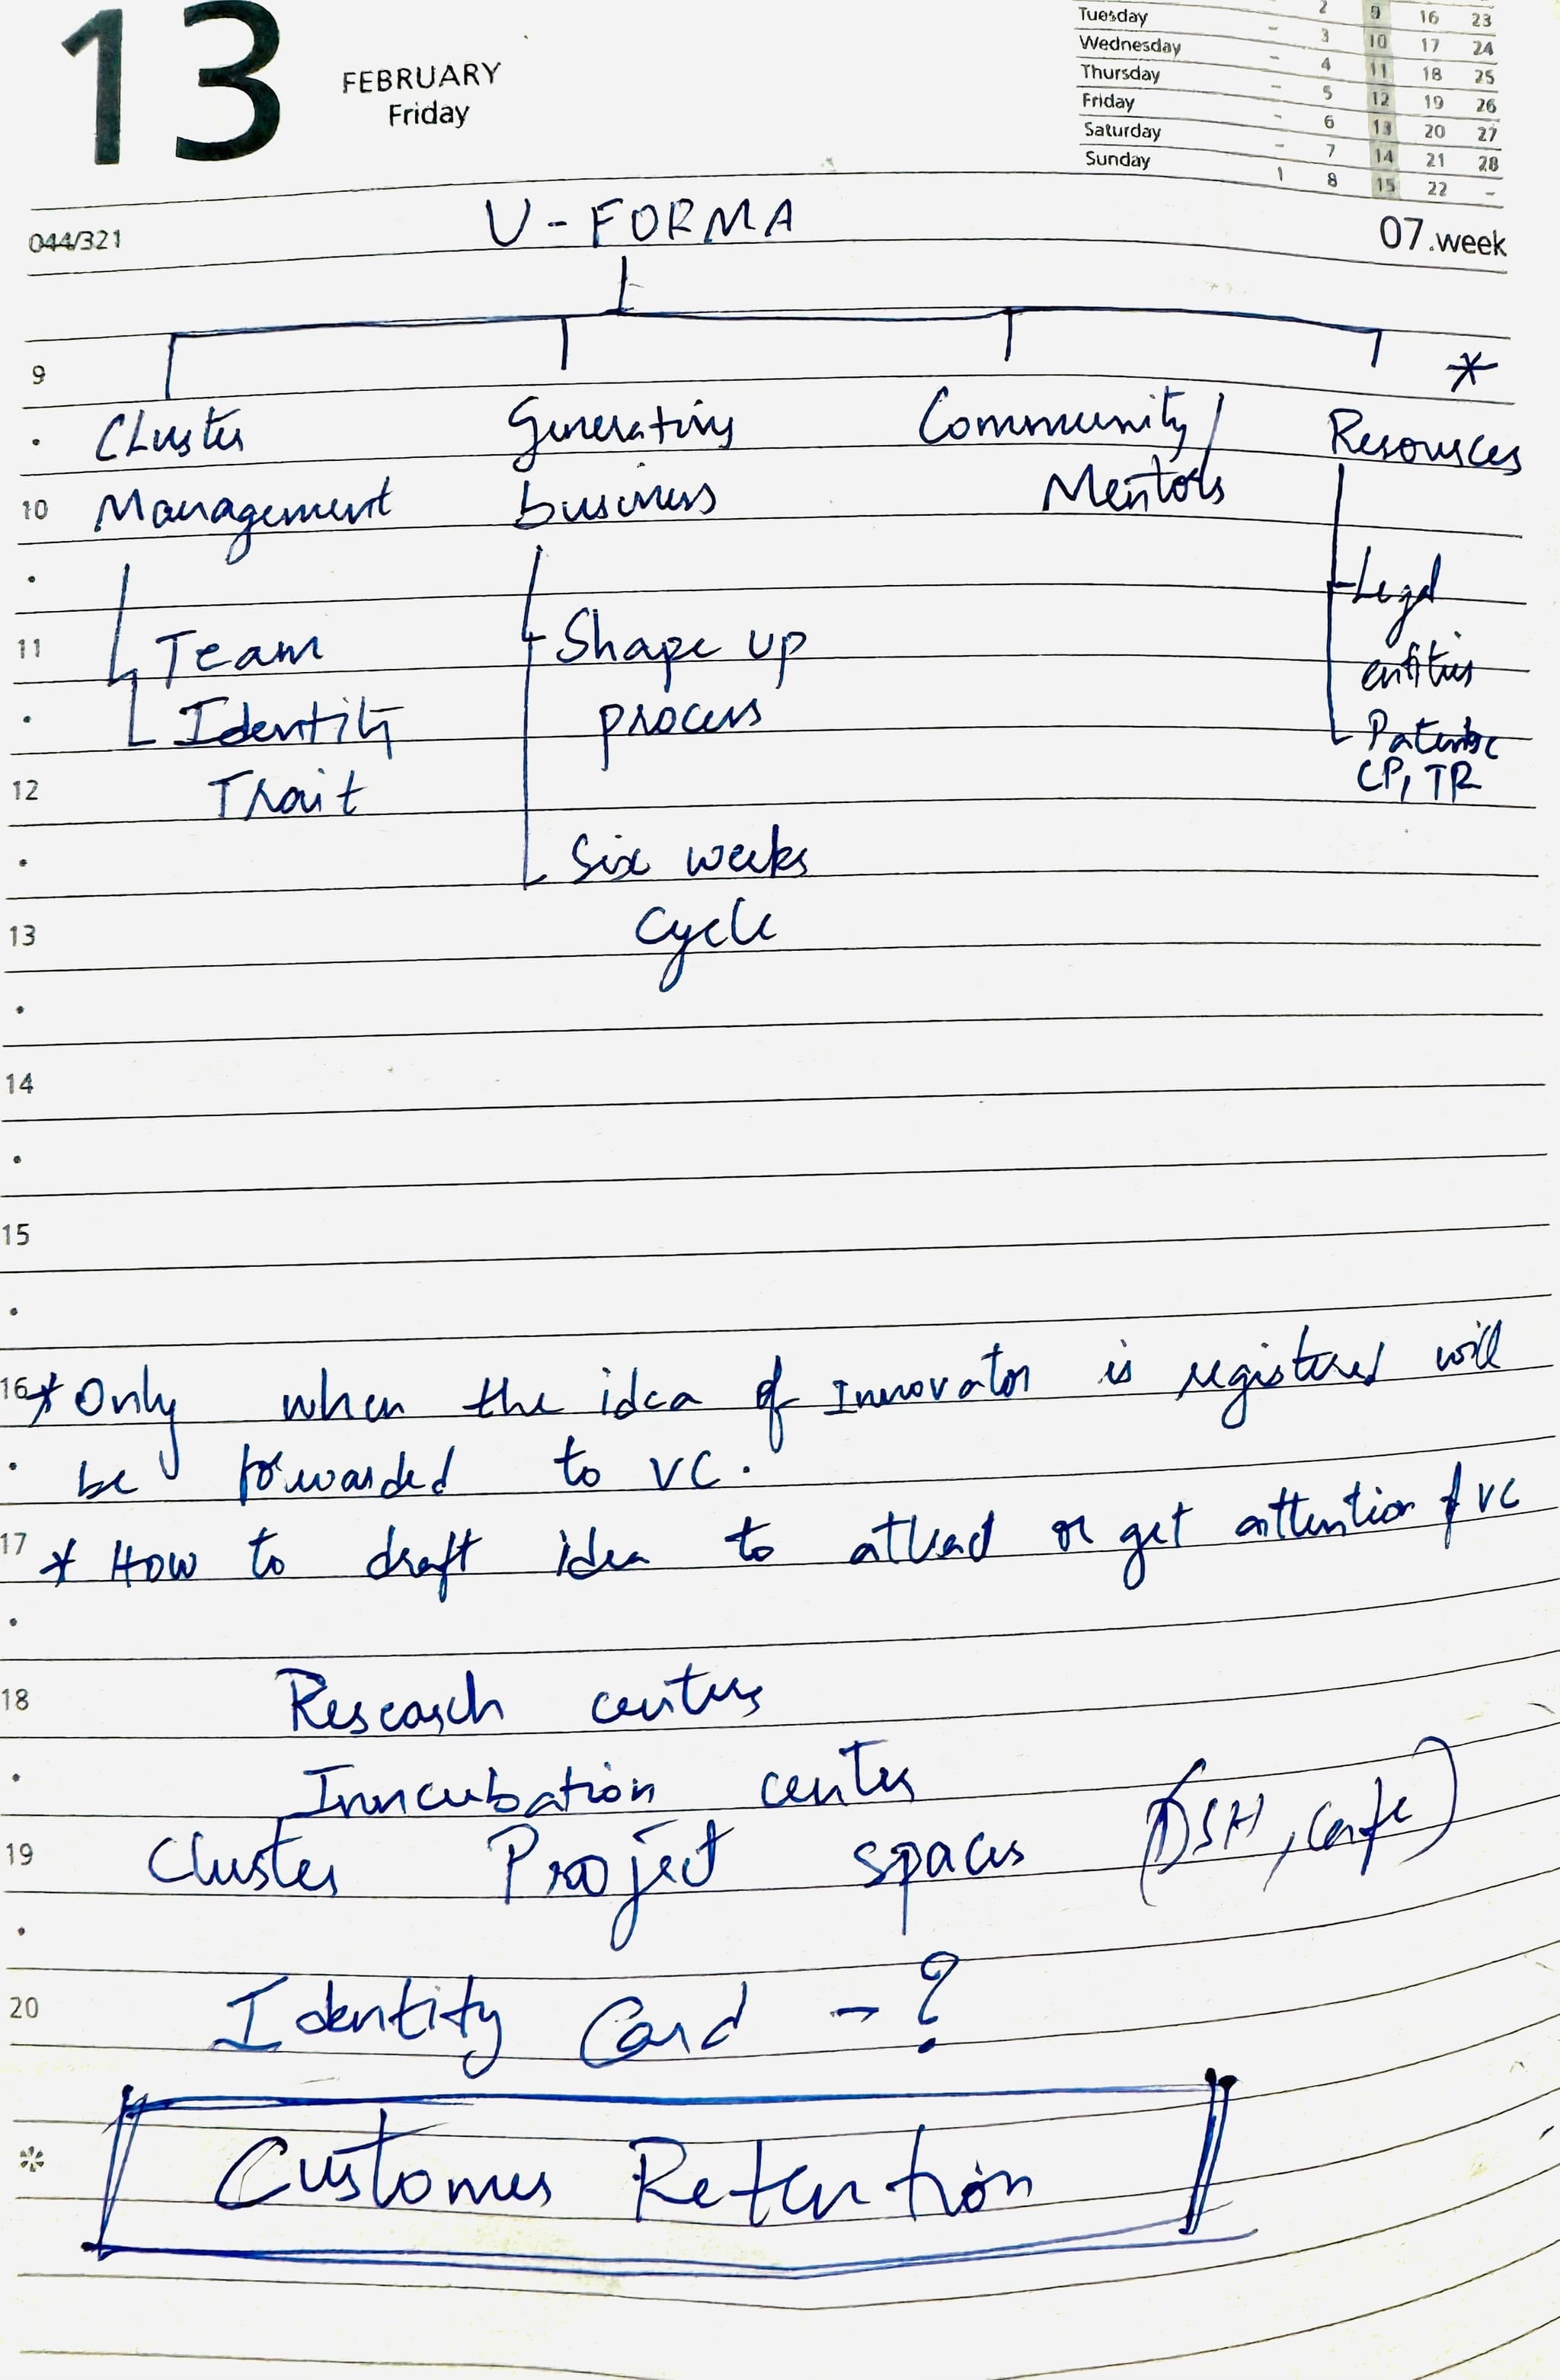 13
FEBRUARY
Friday
2 9 16 23
Tuesday - 3 10 17 24
Wednesday - 4 11 18 25
Thursday - 5 12 19 26
Friday - 6 13 20 27
Saturday - 7 14 21 28
Sunday 1 8 15 22 -
044/321
07.week
U-FORMA
9
*
Cluster Generating Community/ Resources
10 Management business Mentors
Legal
11 Team Shape up entities
Identity process
12 Trait
CP, TR
Six weeks
13 Cycle
14
15
16 * Only when the idea of Innovator is registered will
be forwarded to VC.
17 * How to draft idea to attract or get attention of VC
18 Research centers
Inncubation center
19 Cluster Project spaces
20 Identity Card - ?
Customer Retention